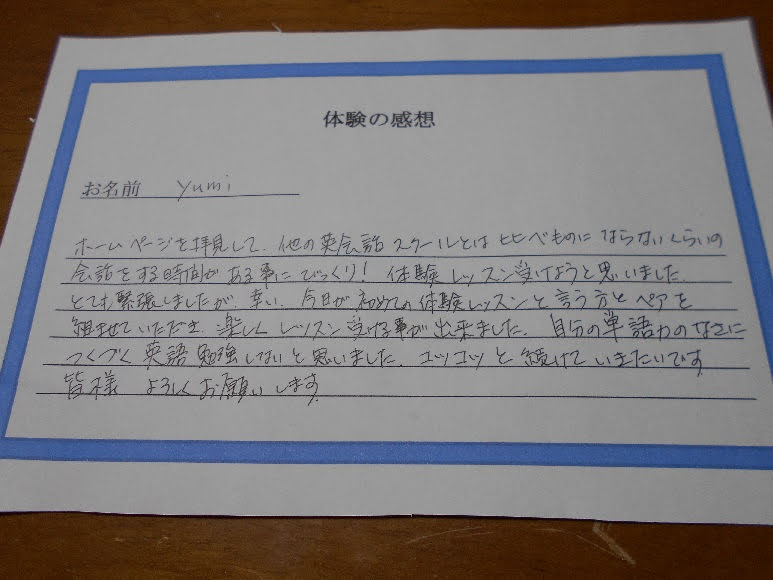 体験の感想
お名前 yumi
ホームページを拝見して、他の英会話スクールとは比べものにならないくらいの
会話をする時間がある事にびっくり! 体験レッスン受けようと思いました。
とても緊張しましたが、幸い、今日が初めての体験レッスンと言う方とペアを
組ませていただき、楽しくレッスン受ける事が出来ました。自分の単語力のなさに
つくづく英語勉強しないと思いました。コツコツと続けていきたいです。
皆様 よろしくお願いします。